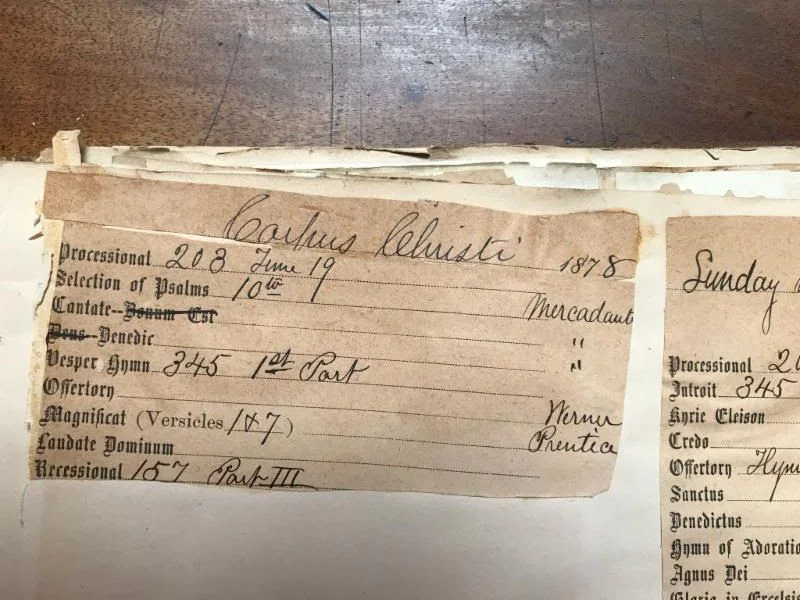 Corpus Christi 1878
Processional 203 June 19
Selection of Psalms 10th
Cantate--Bonum Est Mercadant
Deus--Benedic "
Vesper Hymn 345 1st Part "
Offertory
Magnificat (Versicles 1 & 7) Werner
Laudate Dominum Prentice
Recessional 157 Part III
Sunday
Processional 20
Introit 345
Kyrie Eleison
Credo
Offertory Hym
Sanctus
Benedictus
Hymn of Adoratio
Agnus Dei
Gloria in Excelsis